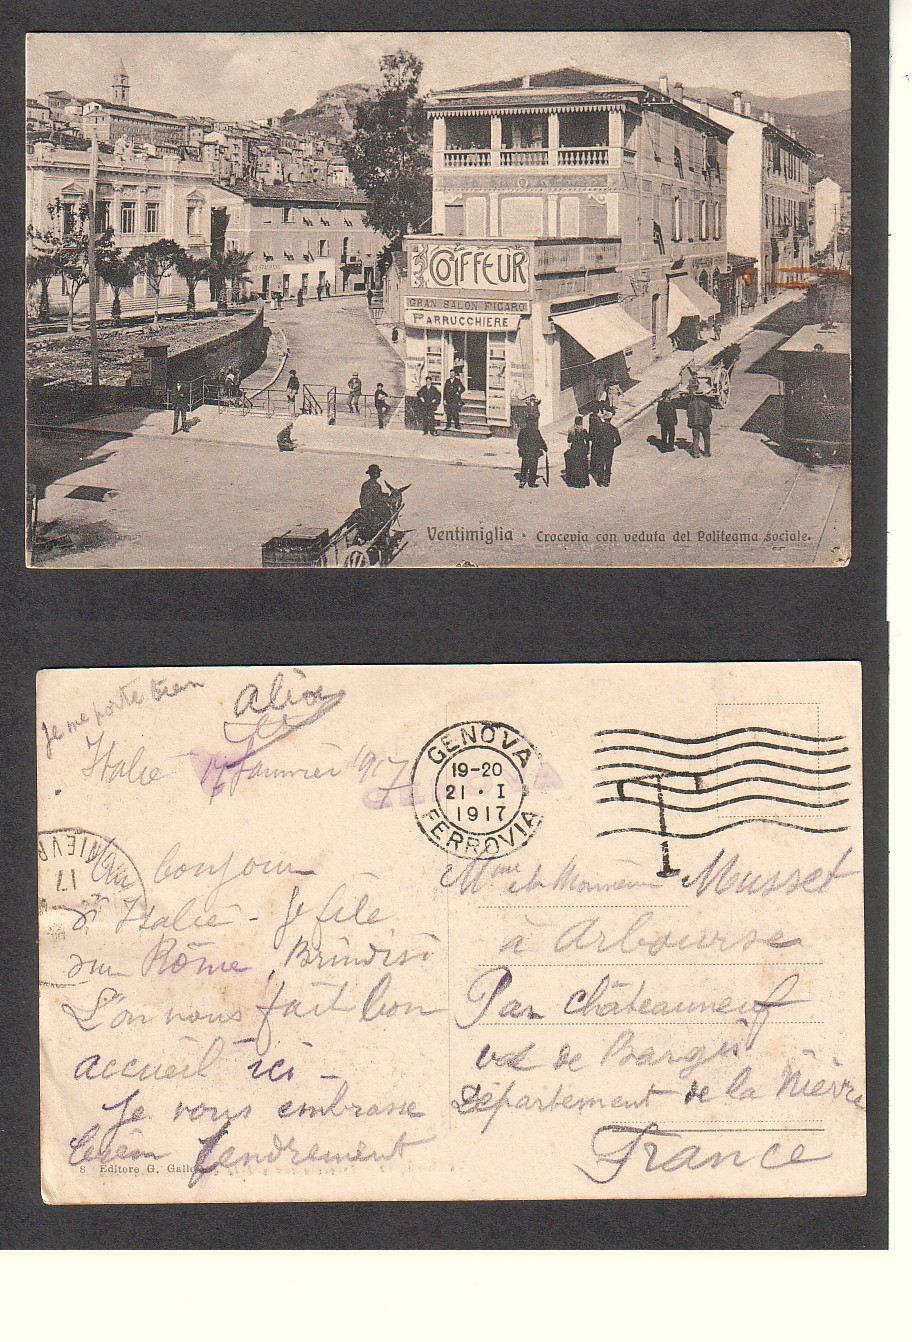 COIFFEUR
GRAN SALON FIGARO
PARRUCCHIERE
Ventimiglia - Crocevia con veduta del Politeama sociale.
Je me porte bien
Italie 17 Janvier 1917
GENOVA
19-20
21 · I
1917
FERROVIA
GENOVA
T
NIEVR
17
bonjour
d'Italie - Je file
sur Rome, Brindisi
L'on nous fait bon
accueil ici -
Je vous embrasse
bien tendrement
8 Editore G. Gallo
Mme et Monsieur Musset
à Arbourse
Par Châteauneuf
val de Bargis
Département de la Nièvre
France